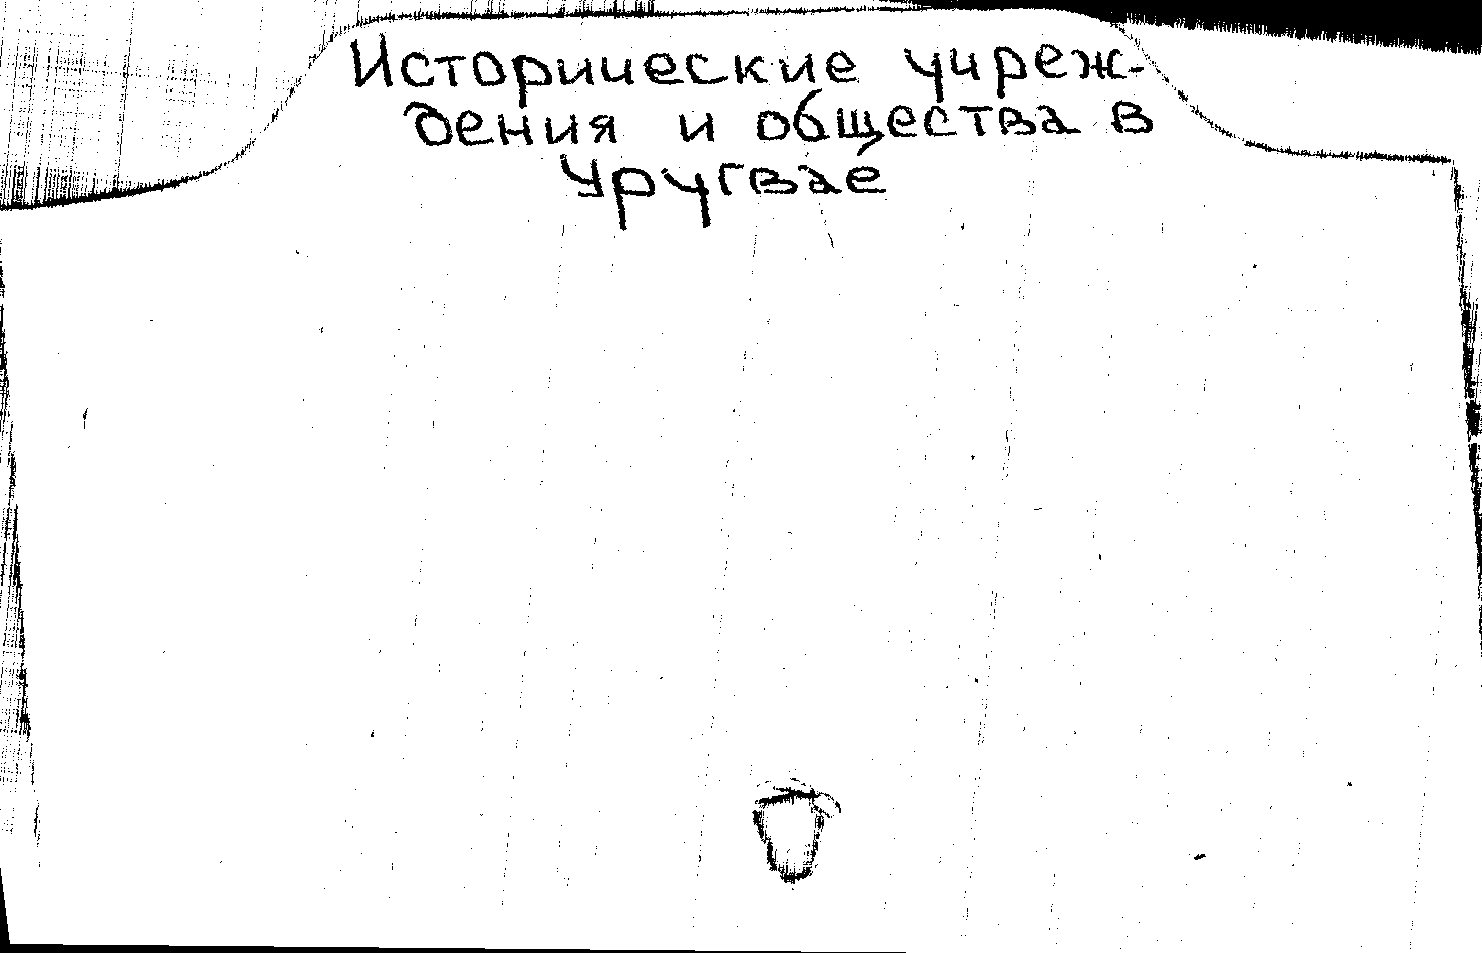 Исторические учреж-
дения и общества в
Уругвае